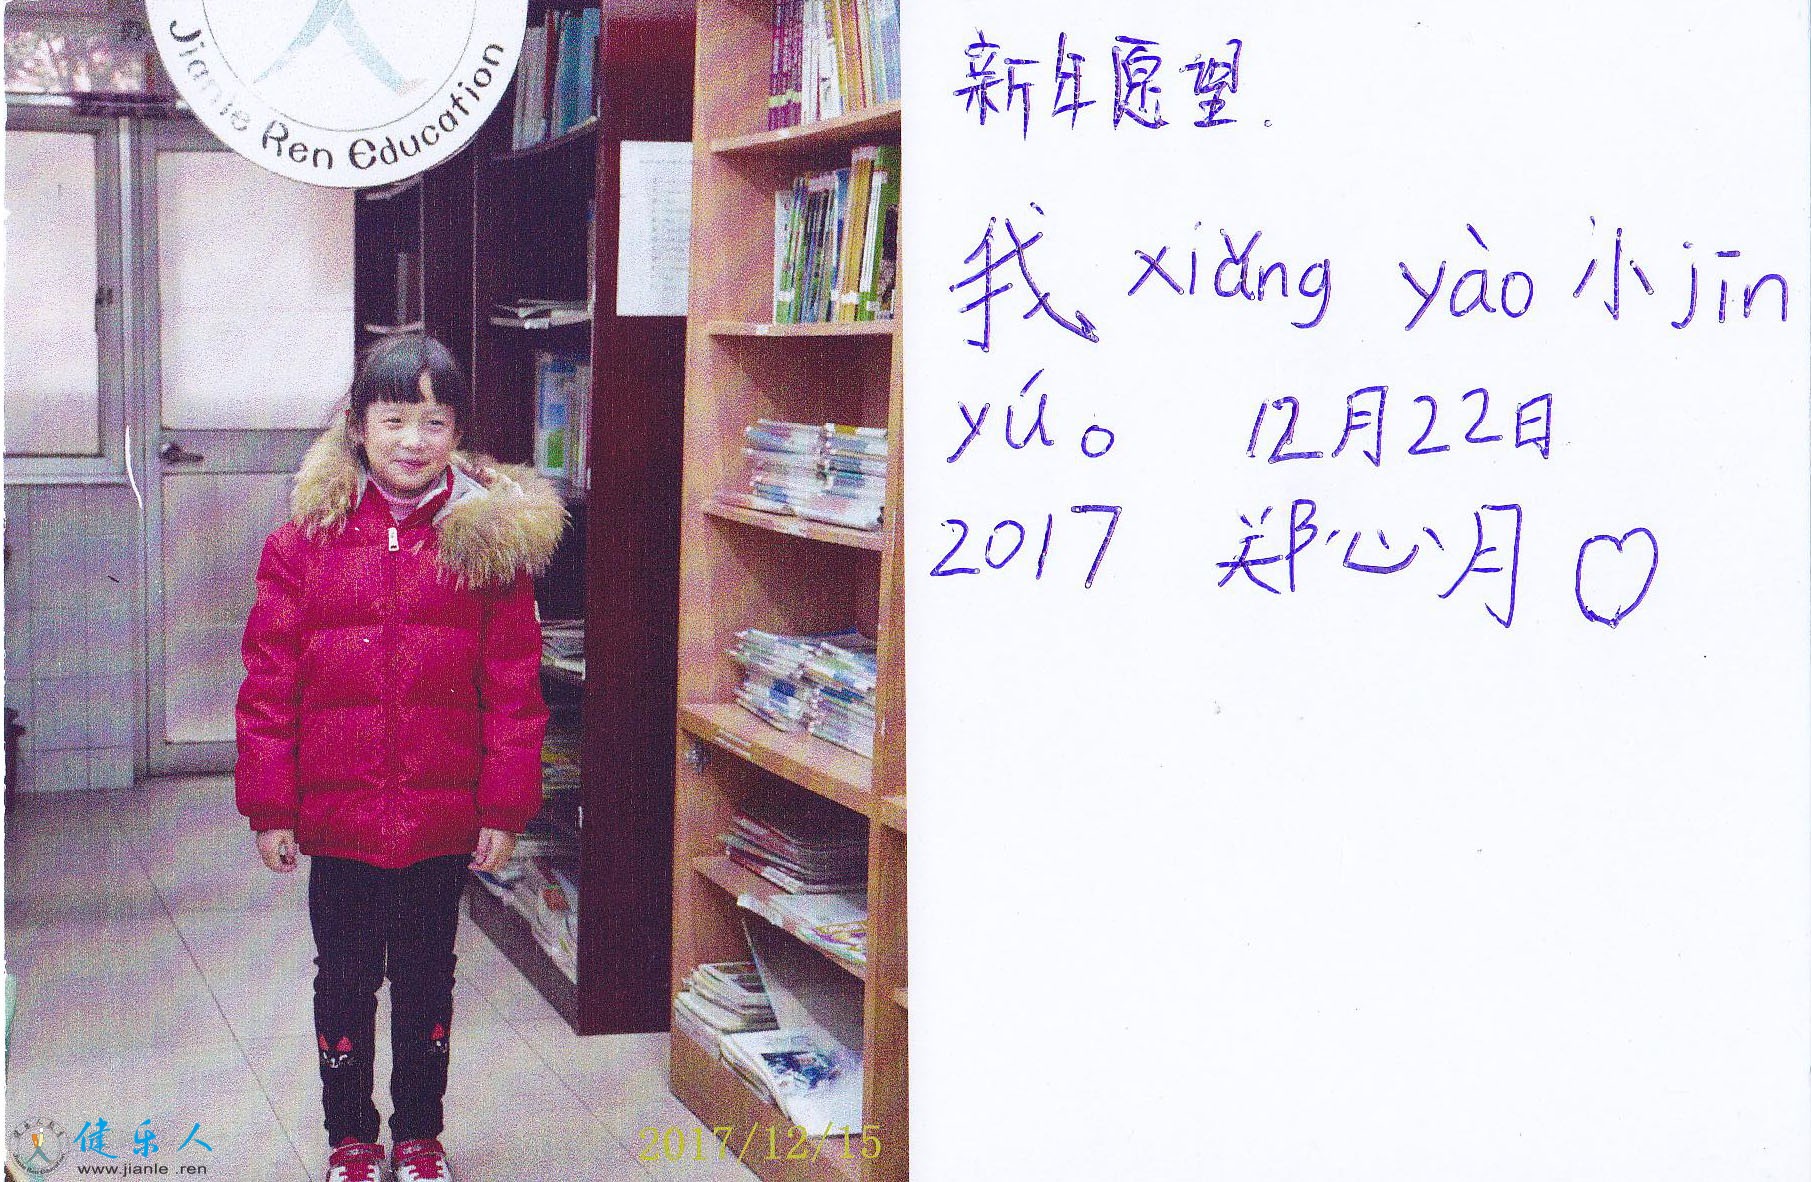 Jianle Ren Education
健乐人
www.jianle .ren
2017/12/15
新年愿望.
我 xiǎng yào 小 jīn
yú。 12月22日
2017 郑心月